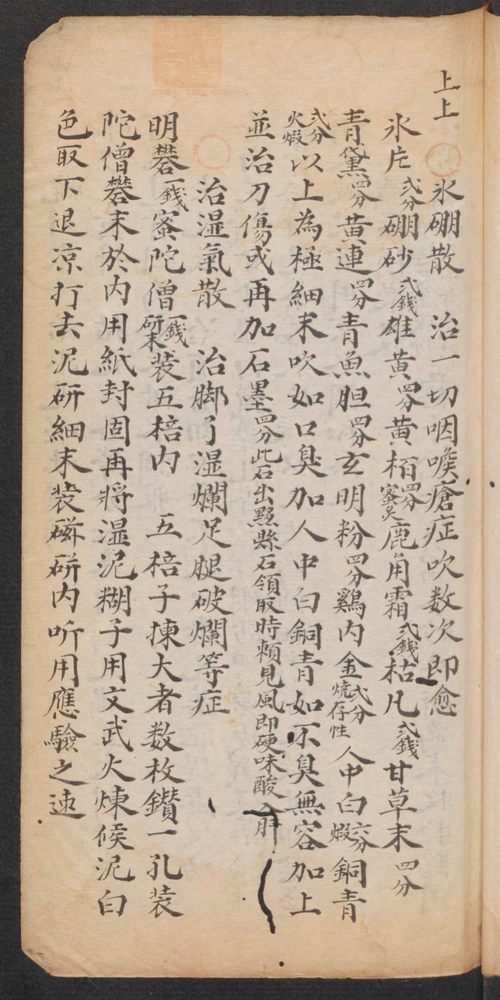 上上
氷硼散　治一切咽喉瘡症吹数次即愈
氷片弍分硼砂弍錢雄黃四分黃栢四分蜜炙鹿角霜弍錢枯凡弍錢甘草末四分
青黛四分黃連四分青魚胆四分玄明粉四分鷄内金弍分燒存性人中白六分煅銅青
弍分火煅以上為極細末吹如口臭加人中白銅青如不臭無容加上
並治刀傷或再加石墨四分此石出黟縣石領取時頪見風即硬味酸入肝
治湿氣散　治脚了湿爛足腿破爛等症
明礬一錢蜜陀僧一錢研末装五棓内　五棓子揀大者数枚鑽一孔装
陀僧礬末於内用紙封固再將湿泥糊子用文武火煉候泥白
色取下退凉打去泥研細末装磁缾内听用應驗之速